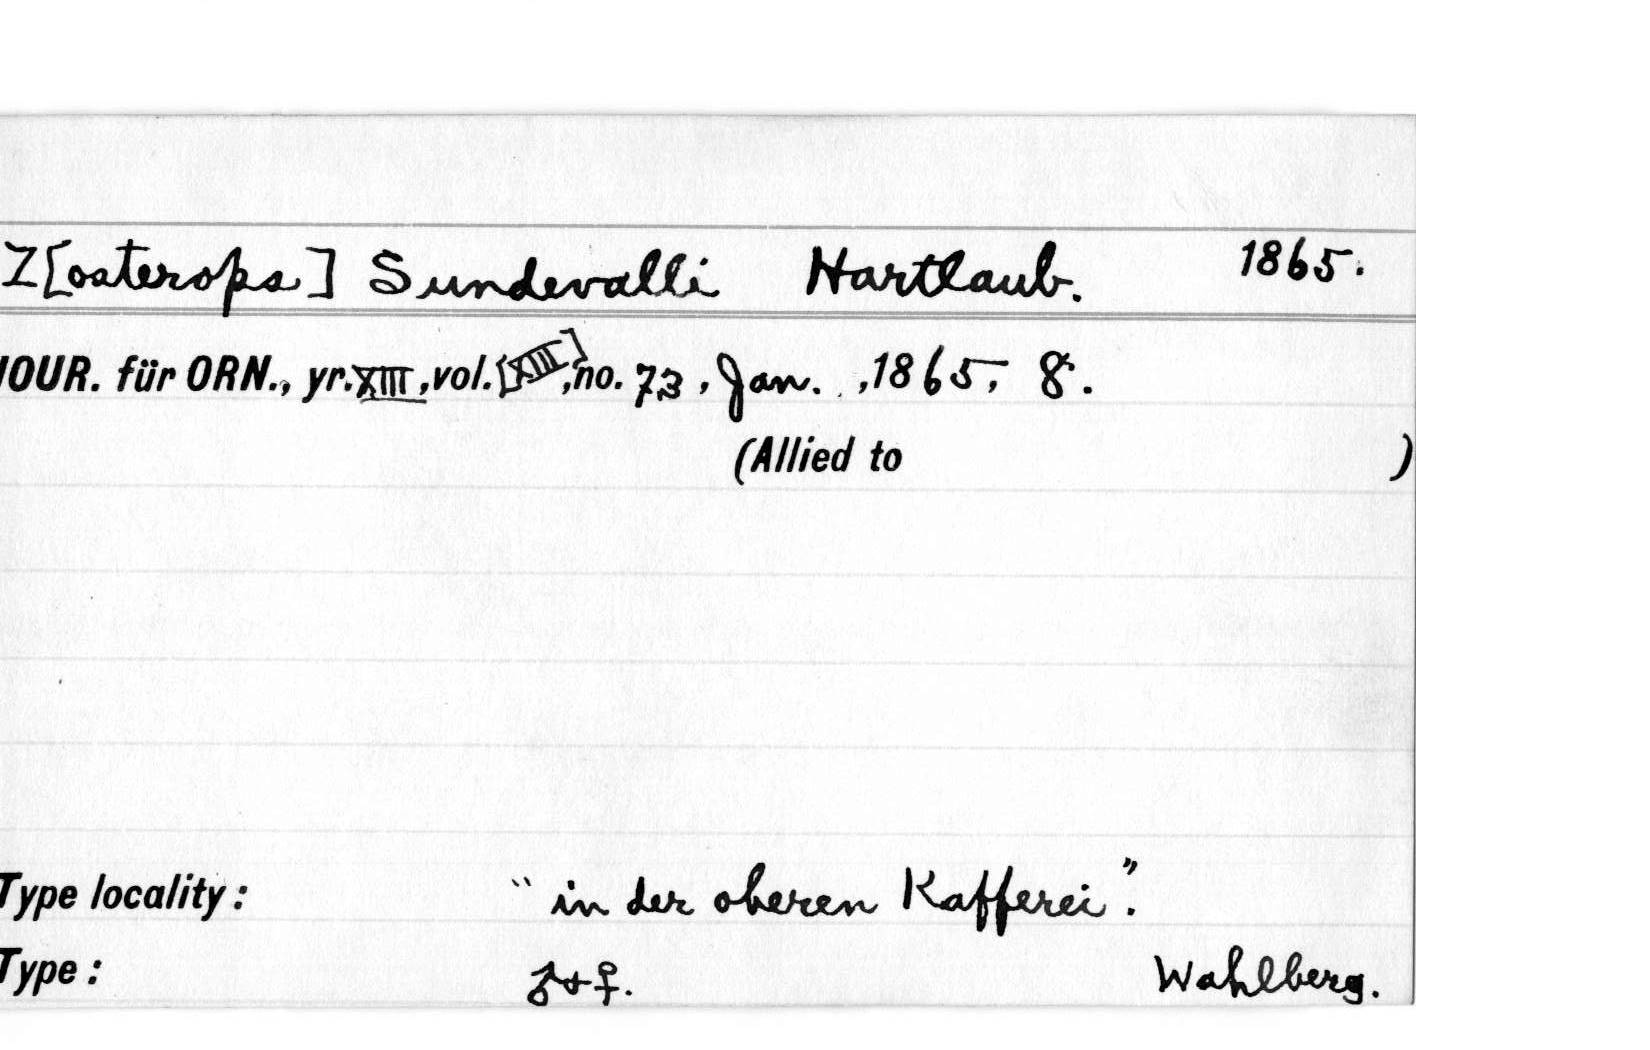 Z[osterops] Sundevalli Hartlaub. 1865.
JOUR. für ORN., yr. XIII, vol. [XIII], no. 73, Jan. , 1865, 8.
(Allied to )
Type locality: "in der oberen Kafferei".
Type: ♂ + ♀. Wahlberg.